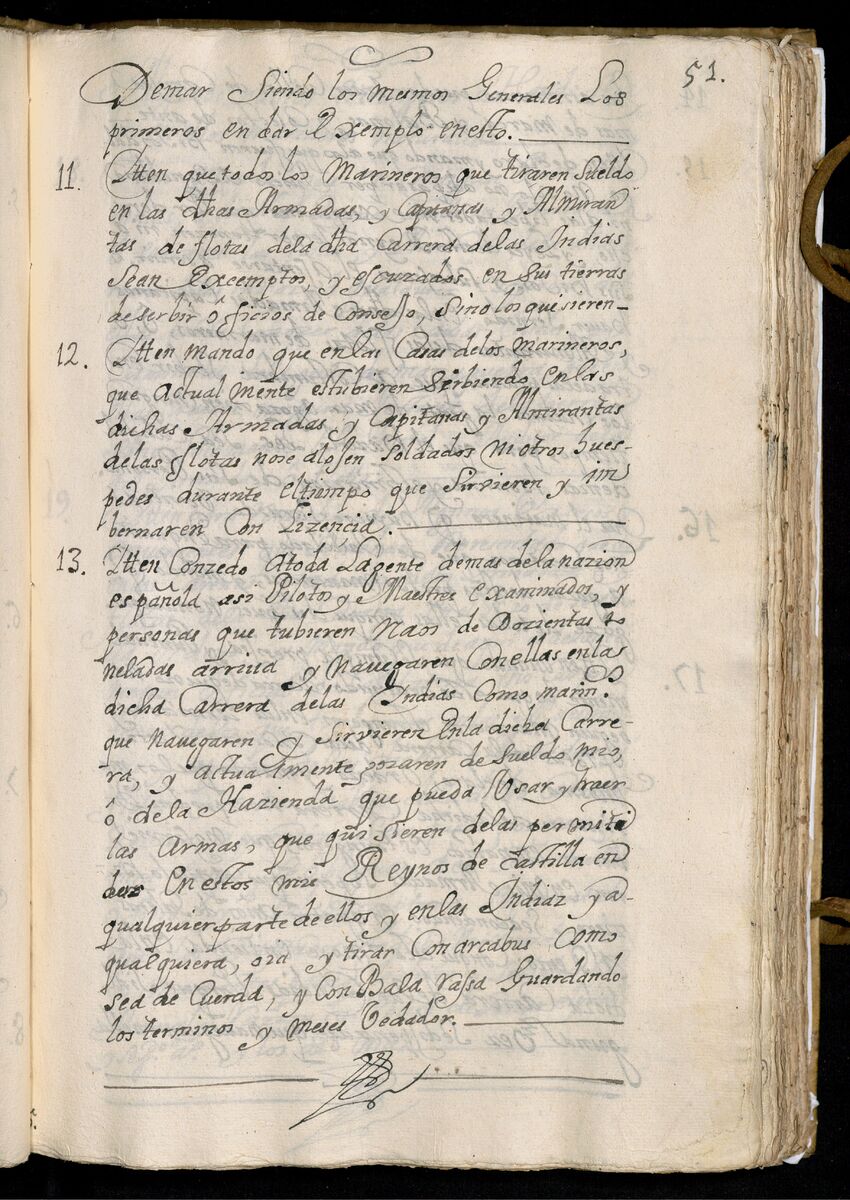 51.
Demar Siendo los mesmos Generales Los
primeros en dar Exemplo enesto.
11. Itten que todos los Marineros que tiraren Sueldo
en las dhas Armadas, y Capitanas y Almiran
tas de flotas dela dha Carrera delas Indias
Sean Excemptos, y escuzados en sus tierras
deserbir ôficios de Consejo, sino los quisieren-
12. Itten mando que en las Casas delos marineros,
que actual mente estubieren Serbiendo, en las
dichas Armadas, y Capitanas y Almirantas
delas flotas nose alojen soldados ni otros hues-
pedes durante eltiempo que Sirvieren y im
bernaren Con Lizençia.
13. Itten Conzedo atoda Lagente demas dela nazion
española asi Pilotos y Maestres examinados, y
personas que tubieren Naos de Dozientas to
neladas arriua y navegaren Conellas enlas
dicha Carrera delas Indias Como marin.os
que navegaren y Sirvieren enla dicha Carre-
ra, y actualmente gozaren de Sueldo mio,
ô dela Hazienda que pueda Usar y traer
las armas, que quisieren delas permiti
das en estos mis Reynos de Castilla en
qualquier parte de ellos y en las Indiaz y a-
qualquiera, oia y tirar Con arcabus como
sea de Cuerda, y Con Bala rassa Guardando
los terminos y meses Vedador.